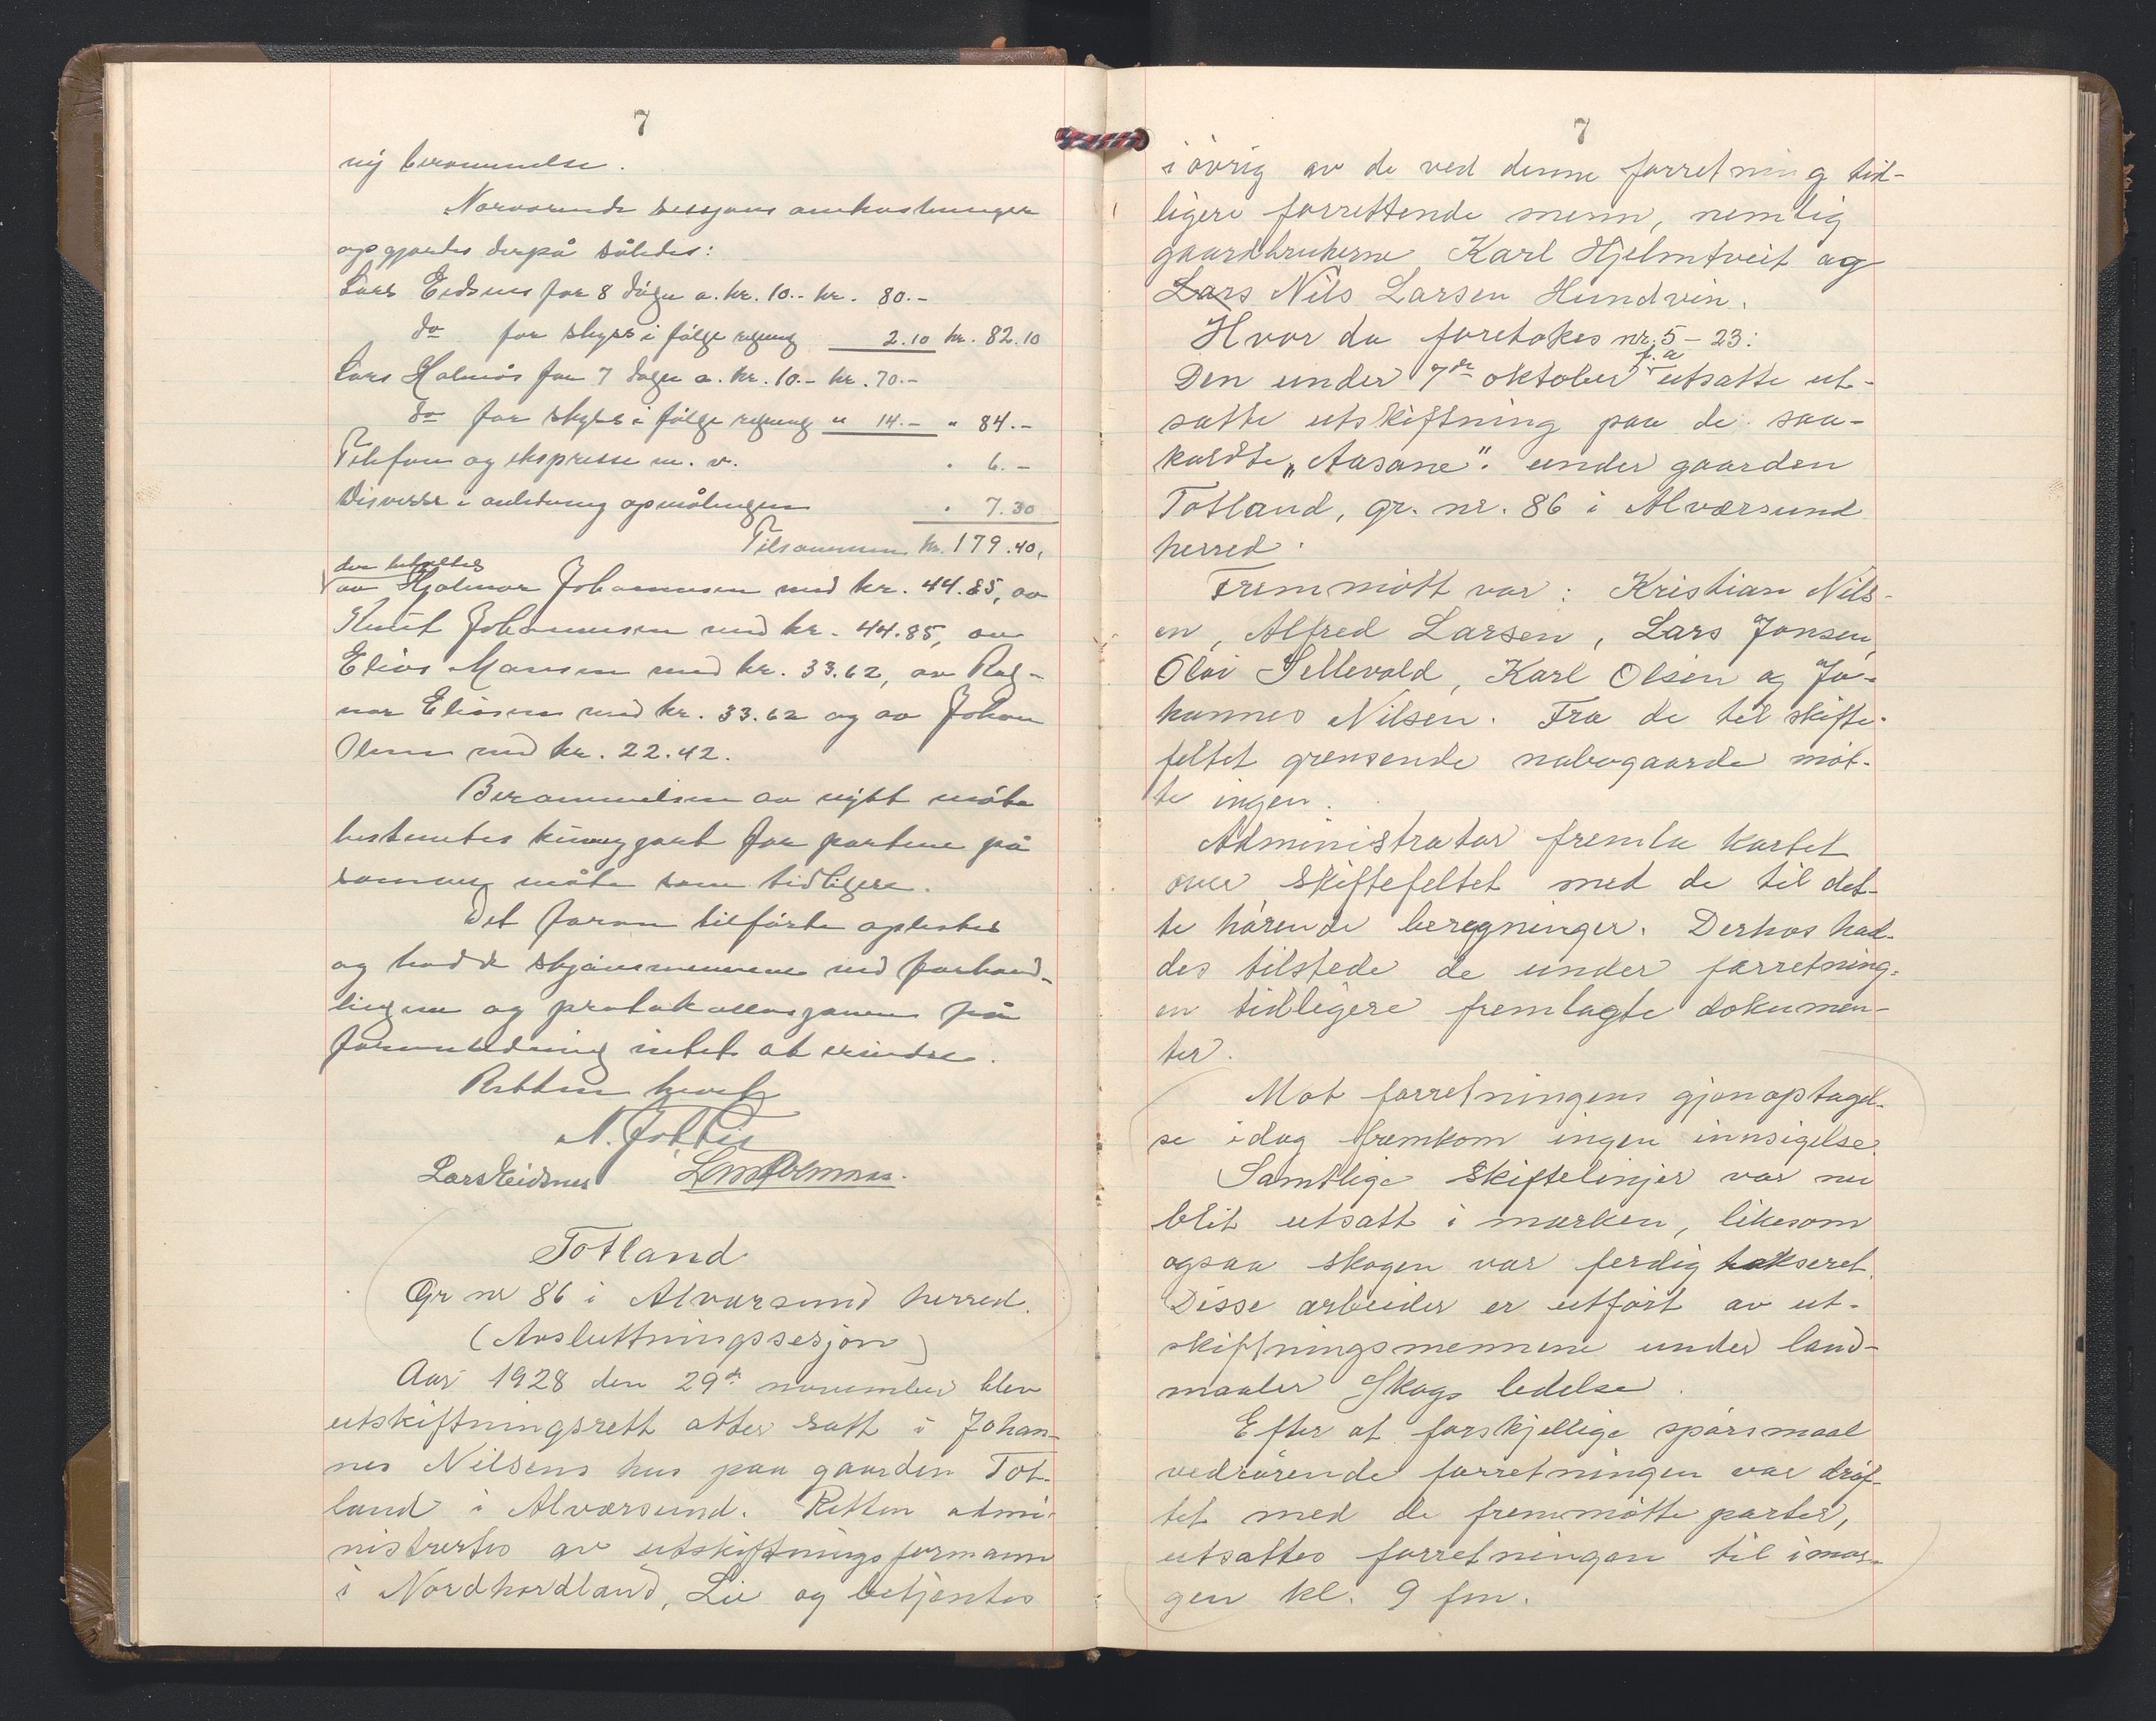 7
ny berammelse.
Nærværende sesjons omkostninger
opgjordes derpå således:
Lars Eidsnes for 8 dager a. kr. 10.- kr. 80.-
do for skyss i følge regning 2.10 kr. 82.10
Lars Holmås for 7 dager a. kr. 10.- kr. 70.-
do for skyss i følge regning " 14.- " 84.-
Telefon og ekspresse m. v. " 6.-
Diverse i anledning opmålingen " 7.30
Tilsammen kr. 179.40,
der betaltes
av Hjalmar Johannessen med kr. 44.85, av
Knut Johannessen med kr. 44.85, av
Elias Monsen med kr. 33.62, av Rag-
nar Eliassen med kr. 33.62 og av Johan
Olsen med kr. 22.42.
Berammelsen av nytt møte
bestemtes kunngjort for partene på
samme måte som tidligere.
Det foran tilførte oplestes
og hadde skjønsmennene ved forhand-
lingene og protokollasjonen på
foranledning intet at erindre.
Retten hevet
N. J. Lie
Lars Eidsnes Lars Holmaas.
Totland
Gr nr 86 i Alversund herred.
(Avsluttningssesjon)
Aar 1928 den 29de november blev
utskiftningsrett atter satt i Johan-
nes Nilsens hus paa gaarden Tot-
land i Alversund. Retten admi-
nistrertes av utskiftningsformann
i Nordhordland, Lie og betjentes
7
i øvrig av de ved denne forretning tid-
ligere forrettende menn, nemlig
gaardbrukerne Karl Hjelmtveit og
Lars Nils Larsen Hundvin.
Hvor da foretokes nr. 5 - 23:
f. a
Den under 7de oktober utsatte ut-
satte utskiftning paa de saa-
kaldte "Aasane". under gaarden
Totland, gr. nr. 86 i Alversund
herred.
Fremmøtt var: Kristian Nils-
en, Alfred Larsen, Lars Jonsen,
Olai Sellevold, Karl Olsen og Jo-
hannes Nilsen. Fra de til skifte-
feltet grensende nabogaarde møt-
te ingen.
Administrator fremla kartet
over skiftefeltet med de til det-
te hørende beregninger. Derhos had-
des tilstede de under forretning-
en tidligere fremlagte dokumen-
ter.
Mot forretningens gjenoptagel-
se idag fremkom ingen innsigelse.
Samtlige skiftelinjer var nu
blit utsatt i marken, likesom
ogsaa skogen var ferdig takseret.
Disse arbeider er utført av ut-
skiftningsmennene under land-
maaler Skogs ledelse.
Efter at forskjellige spørsmaal
vedrørende forretningen var drøf-
tet med de fremmøtte parter,
utsattes forretningen til imor-
gen kl. 9 fm.